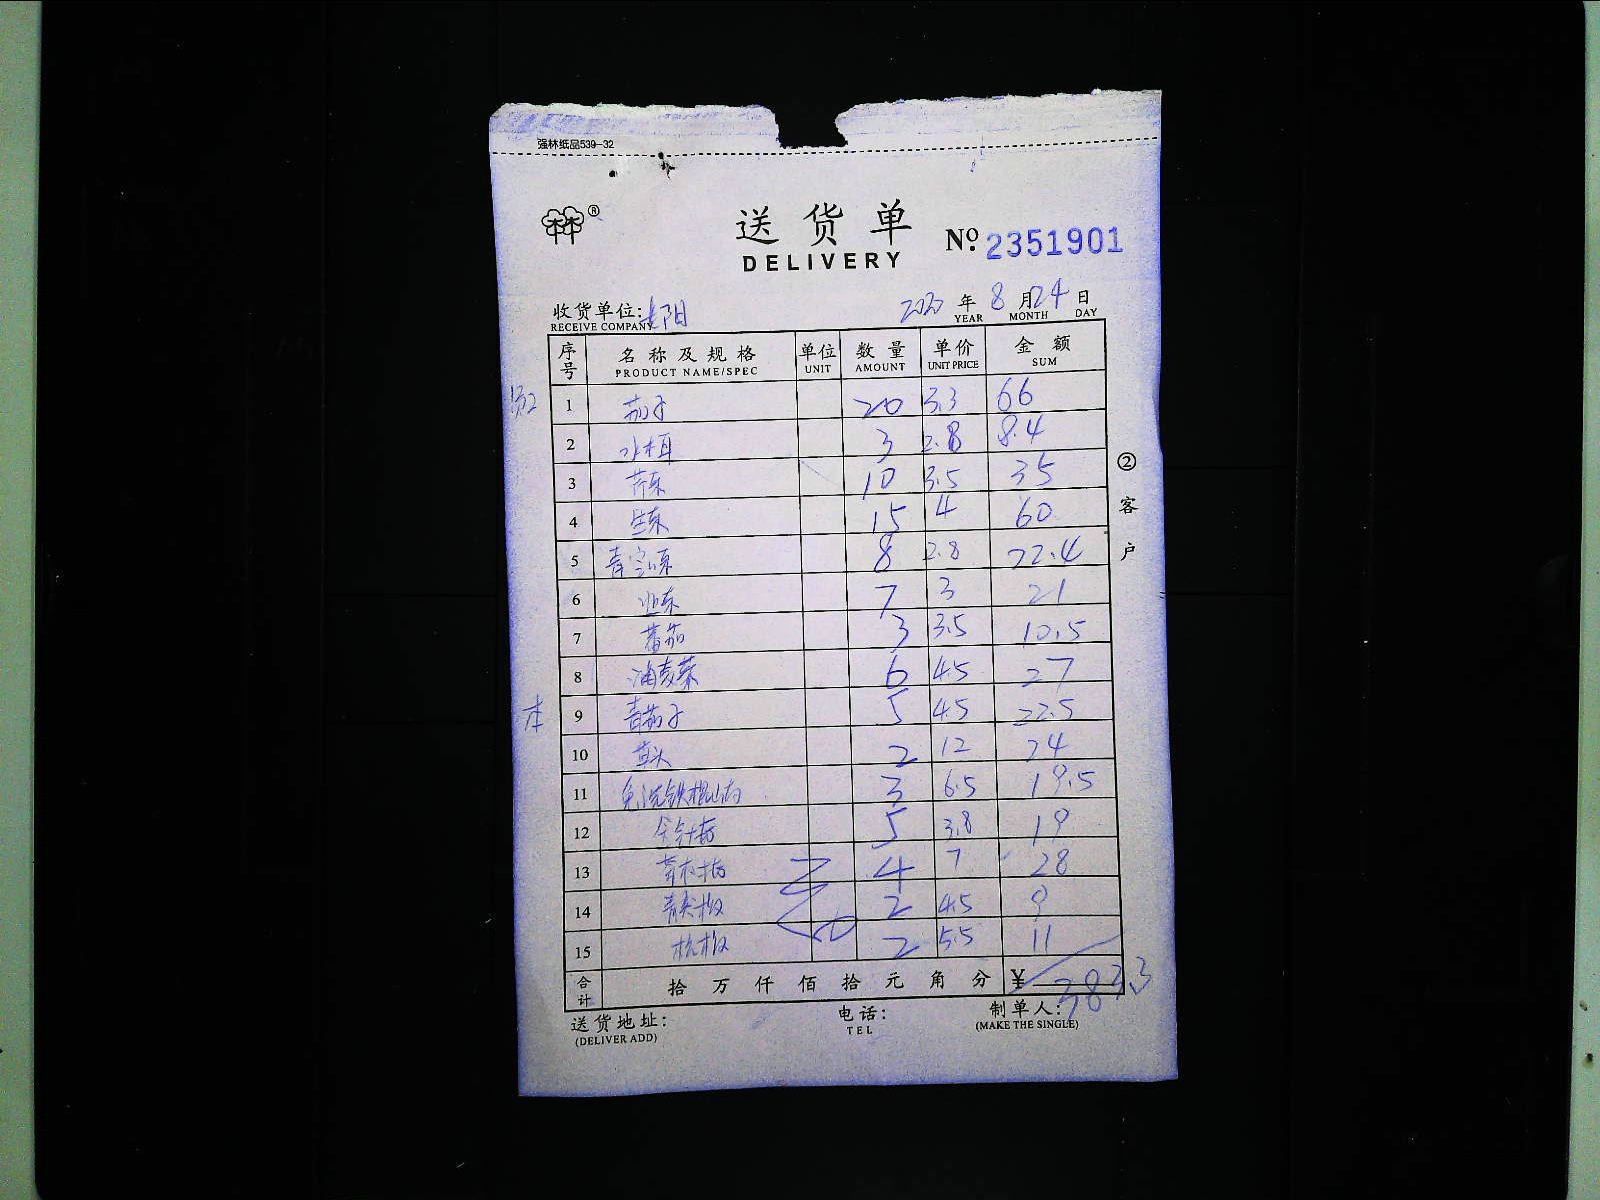 强林纸品539-32
®
送货单
DELIVERY
№ 2351901
收货单位: 阳
RECEIVE COMPANY
2020 年 8 月 24 日
YEAR MONTH DAY
序号 名称及规格 单位 数量 单价 金额
PRODUCT NAME/SPEC UNIT AMOUNT UNIT PRICE SUM
1 茄子 20 3.3 66
2 水梗 3 2.8 8.4
3 芹菜 10 3.5 35
4 生菜 15 4 60
5 青 菜 8 2.8 22.4
6 菜 7 3 21
7 蕃茄 3 3.5 10.5
8 油麦菜 6 4.5 27
本
9 青茄子 5 4.5 22.5
10 草头 2 12 24
11 免洗铁棍山药 3 6.5 19.5
12 金针菇 5 3.8 19
13 4 7 28
14 青尖椒 2 4.5 9
15 杭椒 2 5.5 11
合计 拾 万 仟 佰 拾 元 角 分 ¥ 383.3
送货地址: 电话: 制单人:
(DELIVER ADD) TEL (MAKE THE SINGLE)
② 客户